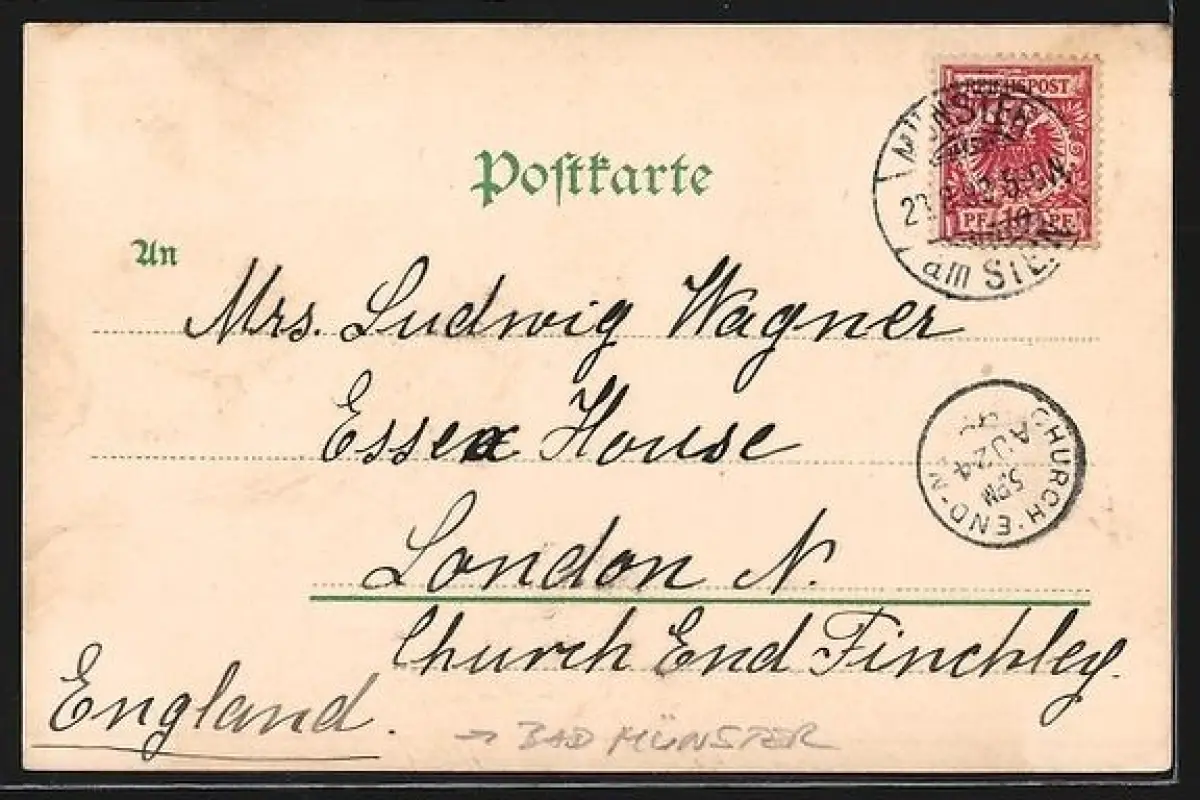 REICHSPOST
PF. 10 PF.
MÜNSTER
5-6N.
am STEIN
Postkarte
An
Mrs. Ludwig Wagner
Essex House
London N.
Church End Finchley.
England.
CHURCH·END·N
AU 24
5PM
→ BAD MÜNSTER